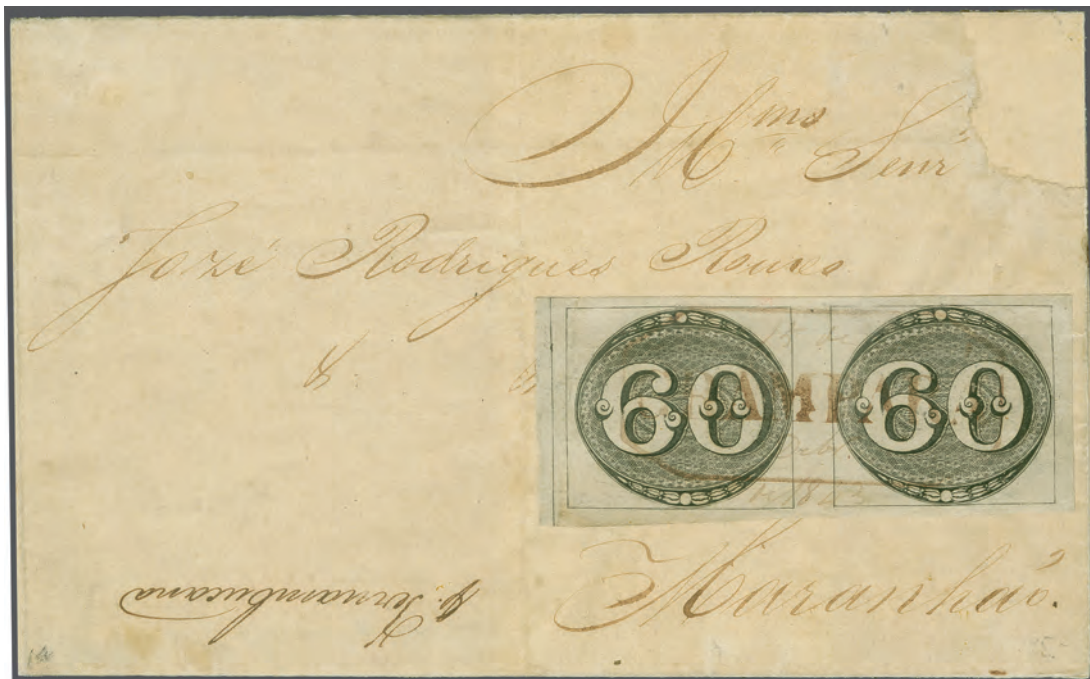 Illmo Senr
Jozé Rodrigues Rouxo
&
60 60
de 1843
Maranhaõ.
p. Pernambucana
14